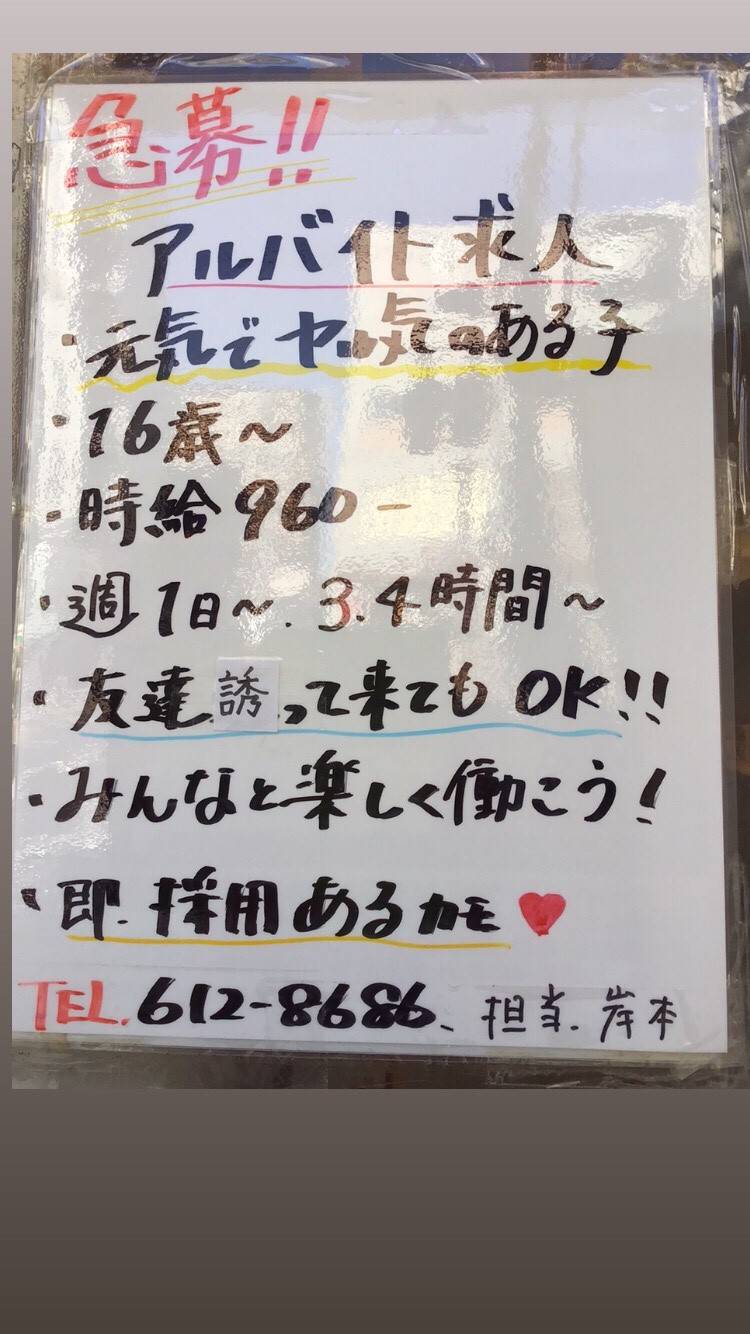 急募!!
アルバイト求人
・元気でヤル気のある子
・16歳〜
・時給960-
・週1日〜.3.4時間〜
・友達誘って来てもOK!!
・みんなと楽しく働こう!
・即.採用あるカモ♥
TEL.612-8686、担当.岸本